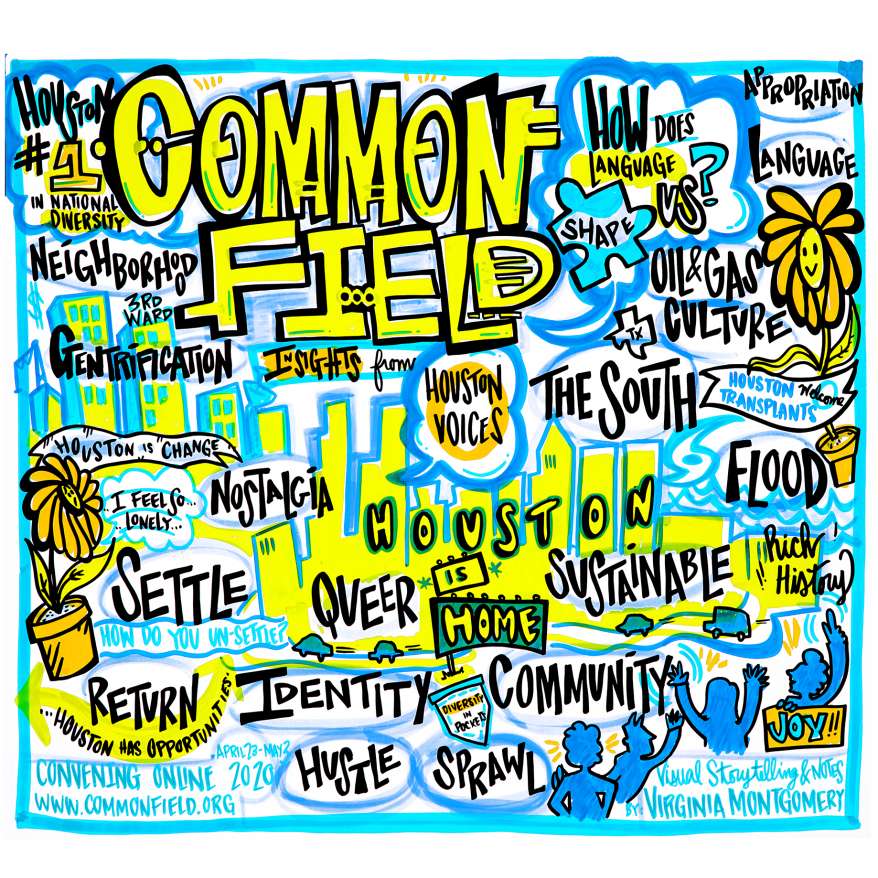 HOUSTON
#1
IN NATIONAL
DIVERSITY
COMMON
FIELD
HOW DOES
LANGUAGE
SHAPE
US?
APPROPRIATION
LANGUAGE
NEIGHBORHOOD
3RD
WARD
GENTRIFICATION
INSIGHTS from
HOUSTON
VOICES
OIL & GAS
CULTURE
TX
THE SOUTH
Welcome
HOUSTON
TRANSPLANTS
"HOUSTON IS "CHANGE"
..I FEEL SO..
LONELY...
NOSTALGIA
FLOOD
HOUSTON
IS
HOME
SETTLE
HOW DO YOU UN-SETTLE?
QUEER
SUSTAINABLE
Rich
History
RETURN
...HOUSTON HAS OPPORTUNITIES..
IDENTITY
DIVERSITY
IN
POCKETS
COMMUNITY
JOY!!
HUSTLE
SPRAWL
APRIL 23-MAY 2
CONVENING ONLINE 2020
WWW.COMMONFIELD.ORG
Visual Storytelling & NOTES
BY: VIRGINIA MONTGOMERY